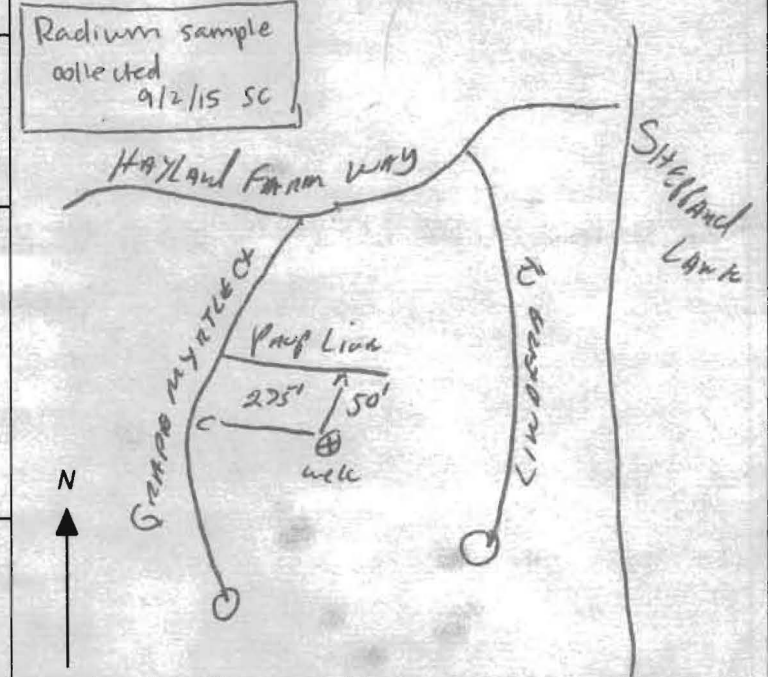 Radium sample
collected
9/2/15 SC
HAYLAND FARM WAY
SHEPPARD
LANE
GRAPE MYRTLE Ct
Prop Line
275'
50'
well
N